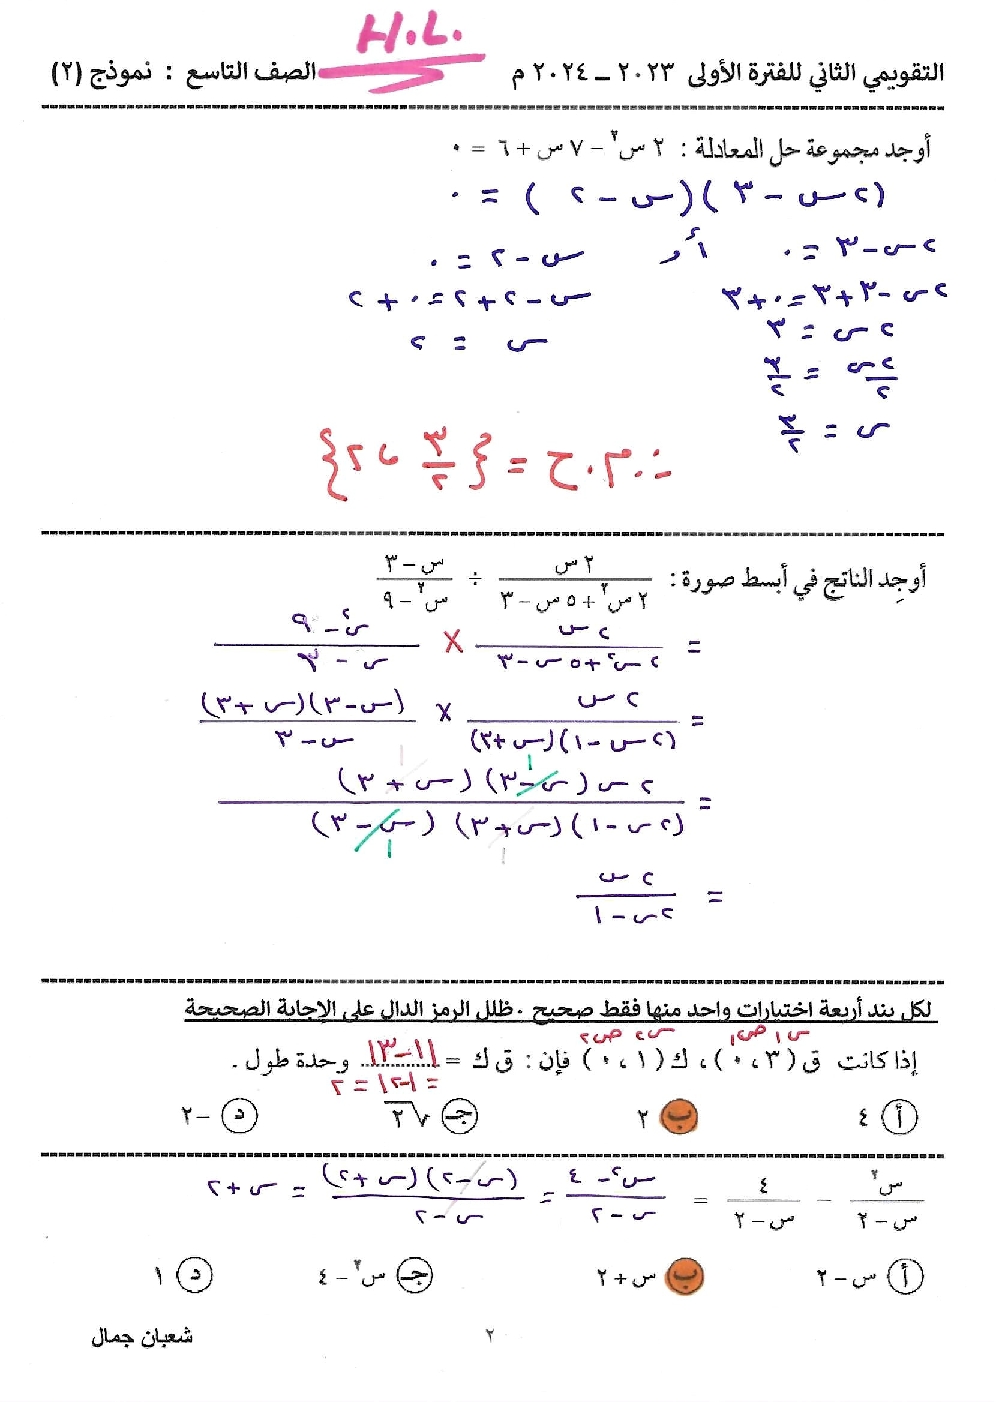 H.L.
التقويمي الثاني للفترة الأولى ٢٠٢٣ – ٢٠٢٤ م الصف التاسع : نموذج (٢)
أوجد مجموعة حل المعادلة : ٢ س٢ – ٧ س + ٦ = ٠
(٢ س – ٣)(س – ٢) = ٠
٢ س – ٣ = ٠ أو س – ٢ = ٠
٢ س – ٣ + ٣ = ٠ + ٣ س – ٢ + ٢ = ٠ + ٢
٢ س = ٣ س = ٢
٢ س/٢ = ٣/٢
س = ٣/٢
∴ م . ح = {٣/٢ ، ٢}
أوجِد الناتج في أبسط صورة : ٢ س/(٢ س٢ + ٥ س – ٣) ÷ (س – ٣)/(س٢ – ٩)
= ٢ س/(٢ س٢ + ٥ س – ٣) × (س٢ – ٩)/(س – ٣)
= ٢ س/((٢ س – ١)(س + ٣)) × (س – ٣)(س + ٣)/(س – ٣)
= ٢ س (س – ٣)(س + ٣)/((٢ س – ١)(س + ٣)(س – ٣))
= ٢ س/(٢ س – ١)
لكل بند أربعة اختيارات واحد منها فقط صحيح ٠ ظلل الرمز الدال على الاجابة الصحيحة
س١ ص١ س٢ ص٢
إذا كانت ق (٣ ، ٠) ، ك (١ ، ٠) فإن : ق ك = |١ – ٣| وحدة طول .
= |–٢| = ٢
أ ٤ ب ٢ جـ √٢ د –٢
س٢/(س – ٢) – ٤/(س – ٢) = (س٢ – ٤)/(س – ٢) = (س – ٢)(س + ٢)/(س – ٢) = س + ٢
أ س – ٢ ب س + ٢ جـ س٢ – ٤ د ١
٢ شعبان جمال